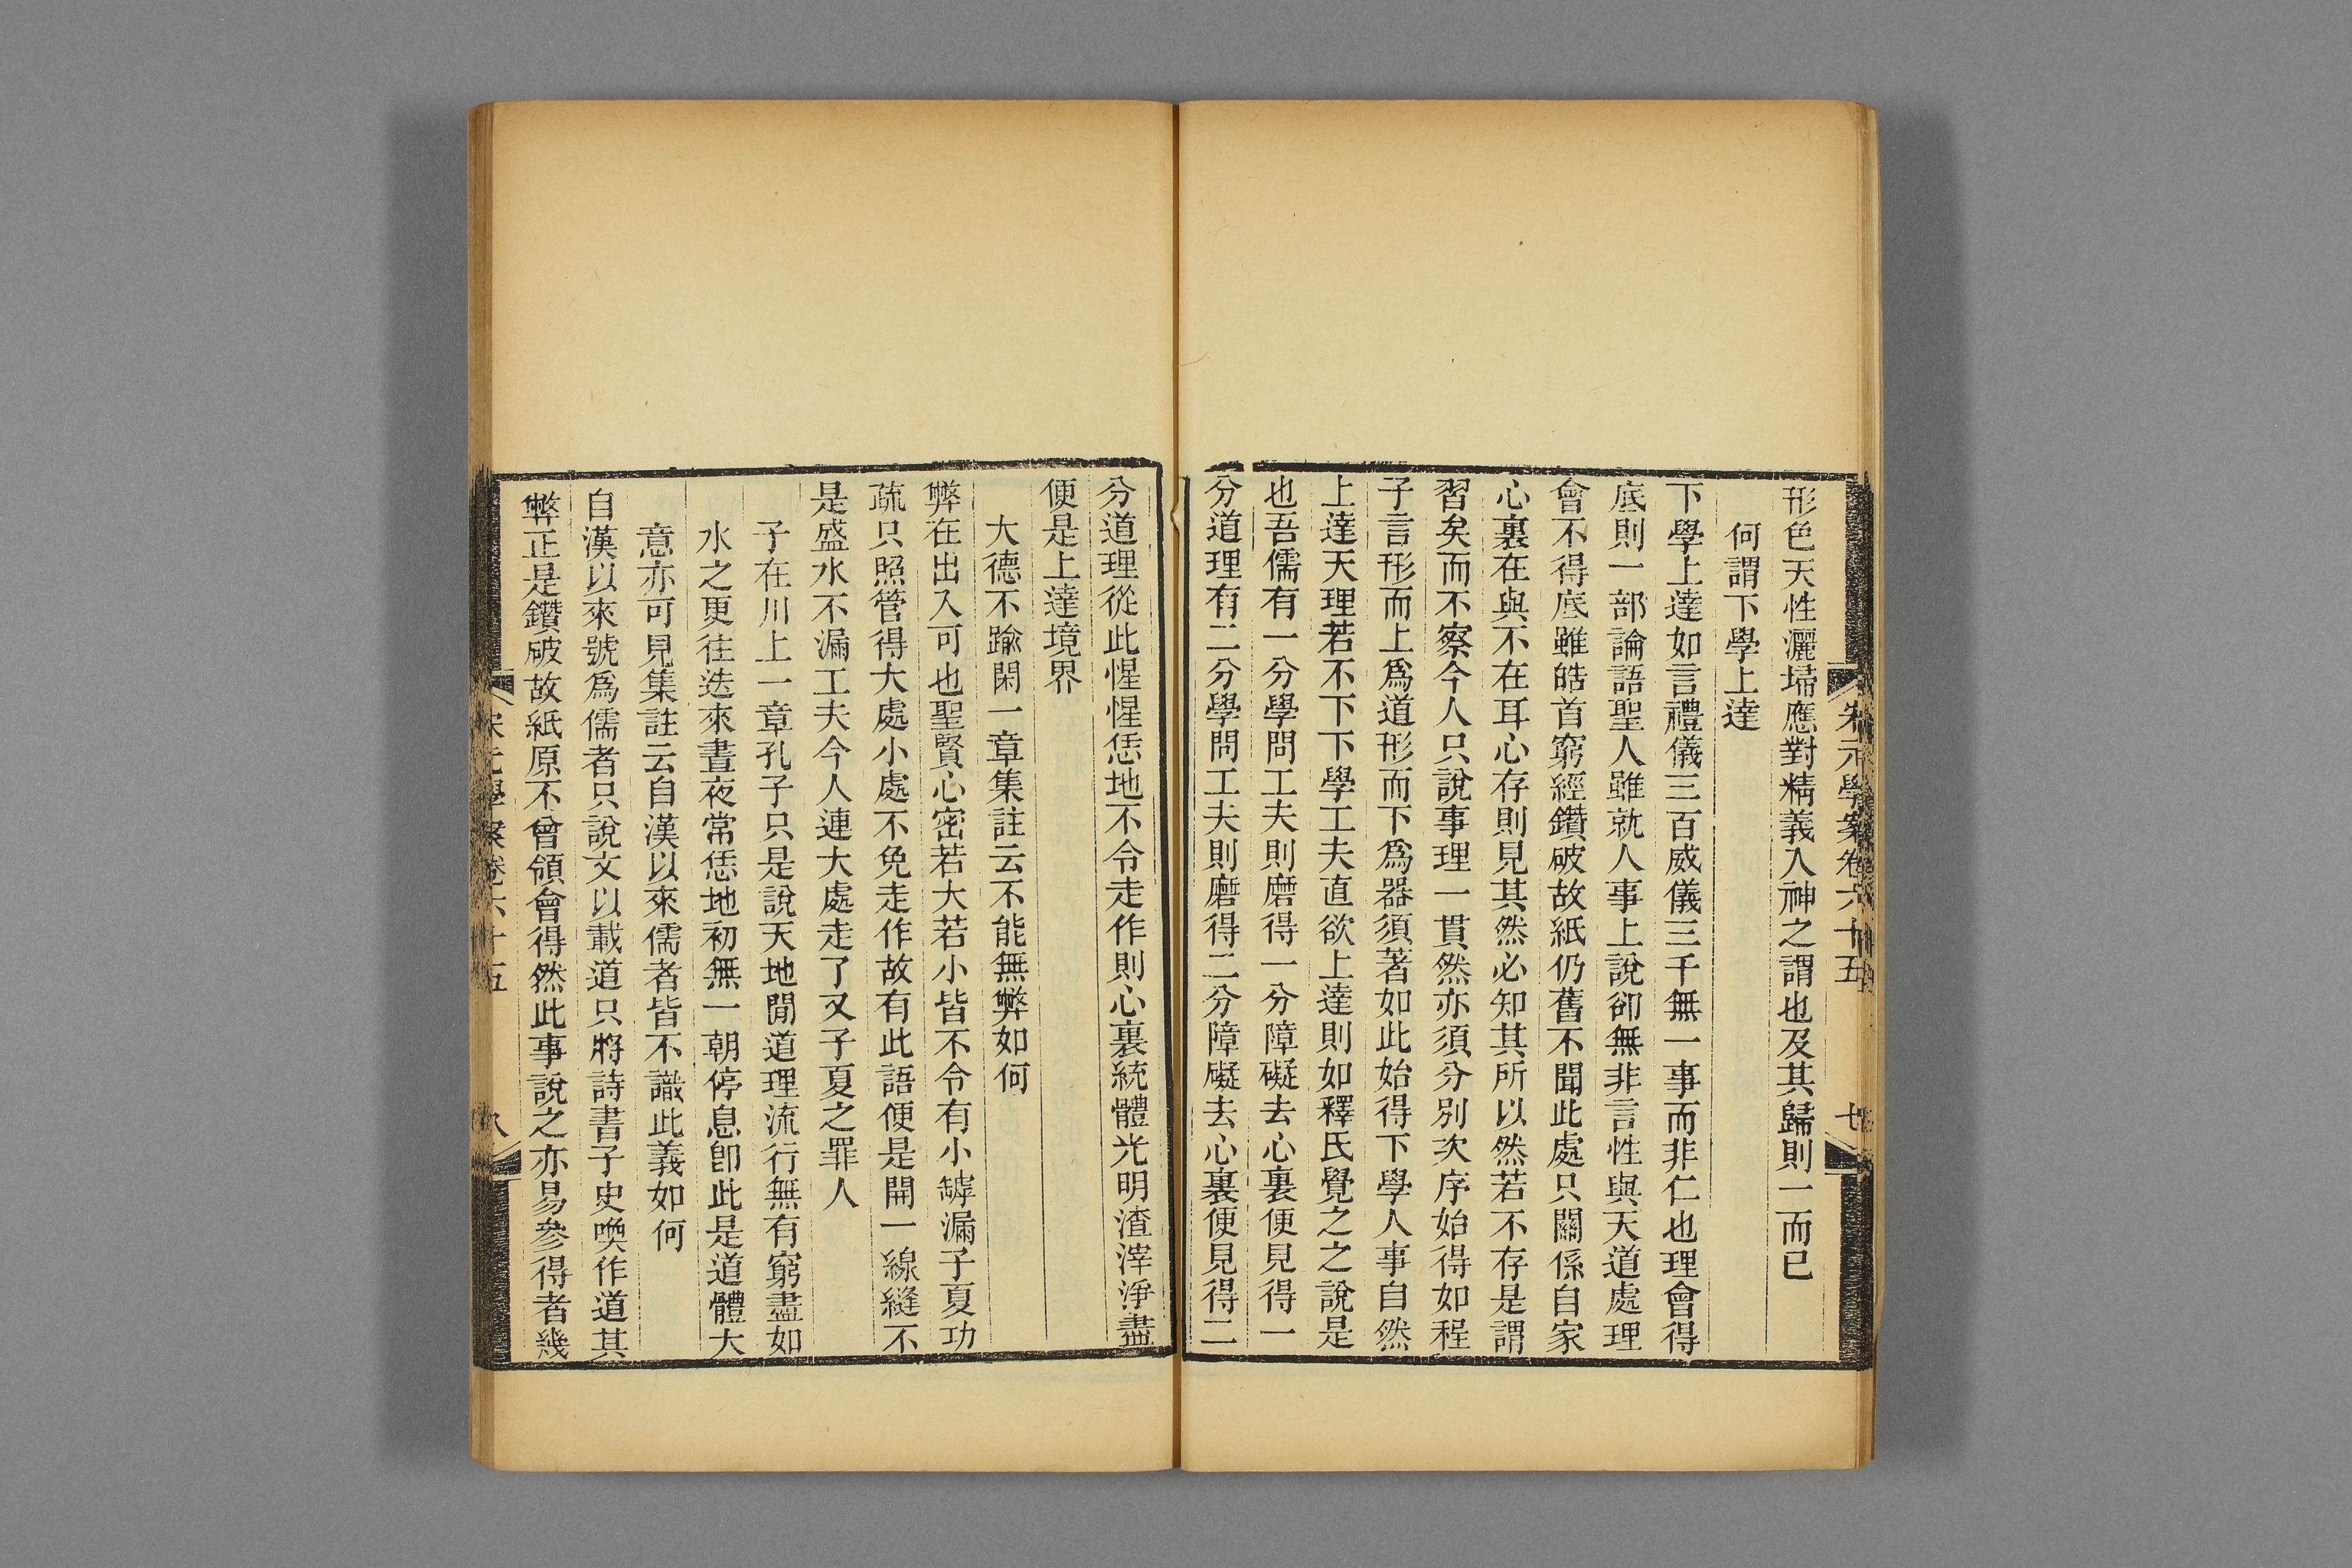 宋元學案卷六十五 七
形色天性灑埽應對精義入神之謂也及其歸則一而已
何謂下學上達
下學上達如言禮儀三百威儀三千無一事而非仁也理會得
底則一部論語聖人雖就人事上說卻無非言性與天道處理
會不得底雖皓首窮經鑽破故紙仍舊不聞此處只關係自家
心裏在與不在耳心存則見其然必知其所以然若不存是謂
習矣而不察今人只說事理一貫然亦須分別次序始得如程
子言形而上爲道形而下爲器須著如此始得下學人事自然
上達天理若不下下學工夫直欲上達則如釋氏覺之之說是
也吾儒有一分學問工夫則磨得一分障礙去心裏便見得一
分道理有二分學問工夫則磨得二分障礙去心裏便見得二
分道理從此惺惺恁地不令走作則心裏統體光明渣滓淨盡
便是上達境界
大德不踰閑一章集註云不能無弊如何
弊在出入可也聖賢心密若大若小皆不令有小罅漏子夏功
疏只照管得大處小處不免走作故有此語便是開一線縫不
是盛水不漏工夫今人連大處走了又子夏之罪人
子在川上一章孔子只是說天地閒道理流行無有窮盡如
水之更往迭來晝夜常恁地初無一朝停息卽此是道體大
意亦可見集註云自漢以來儒者皆不識此義如何
自漢以來號爲儒者只說文以載道只將詩書子史喚作道其
弊正是鑽破故紙原不曾領會得然此事說之亦易參得者幾
宋元學案卷六十五 八